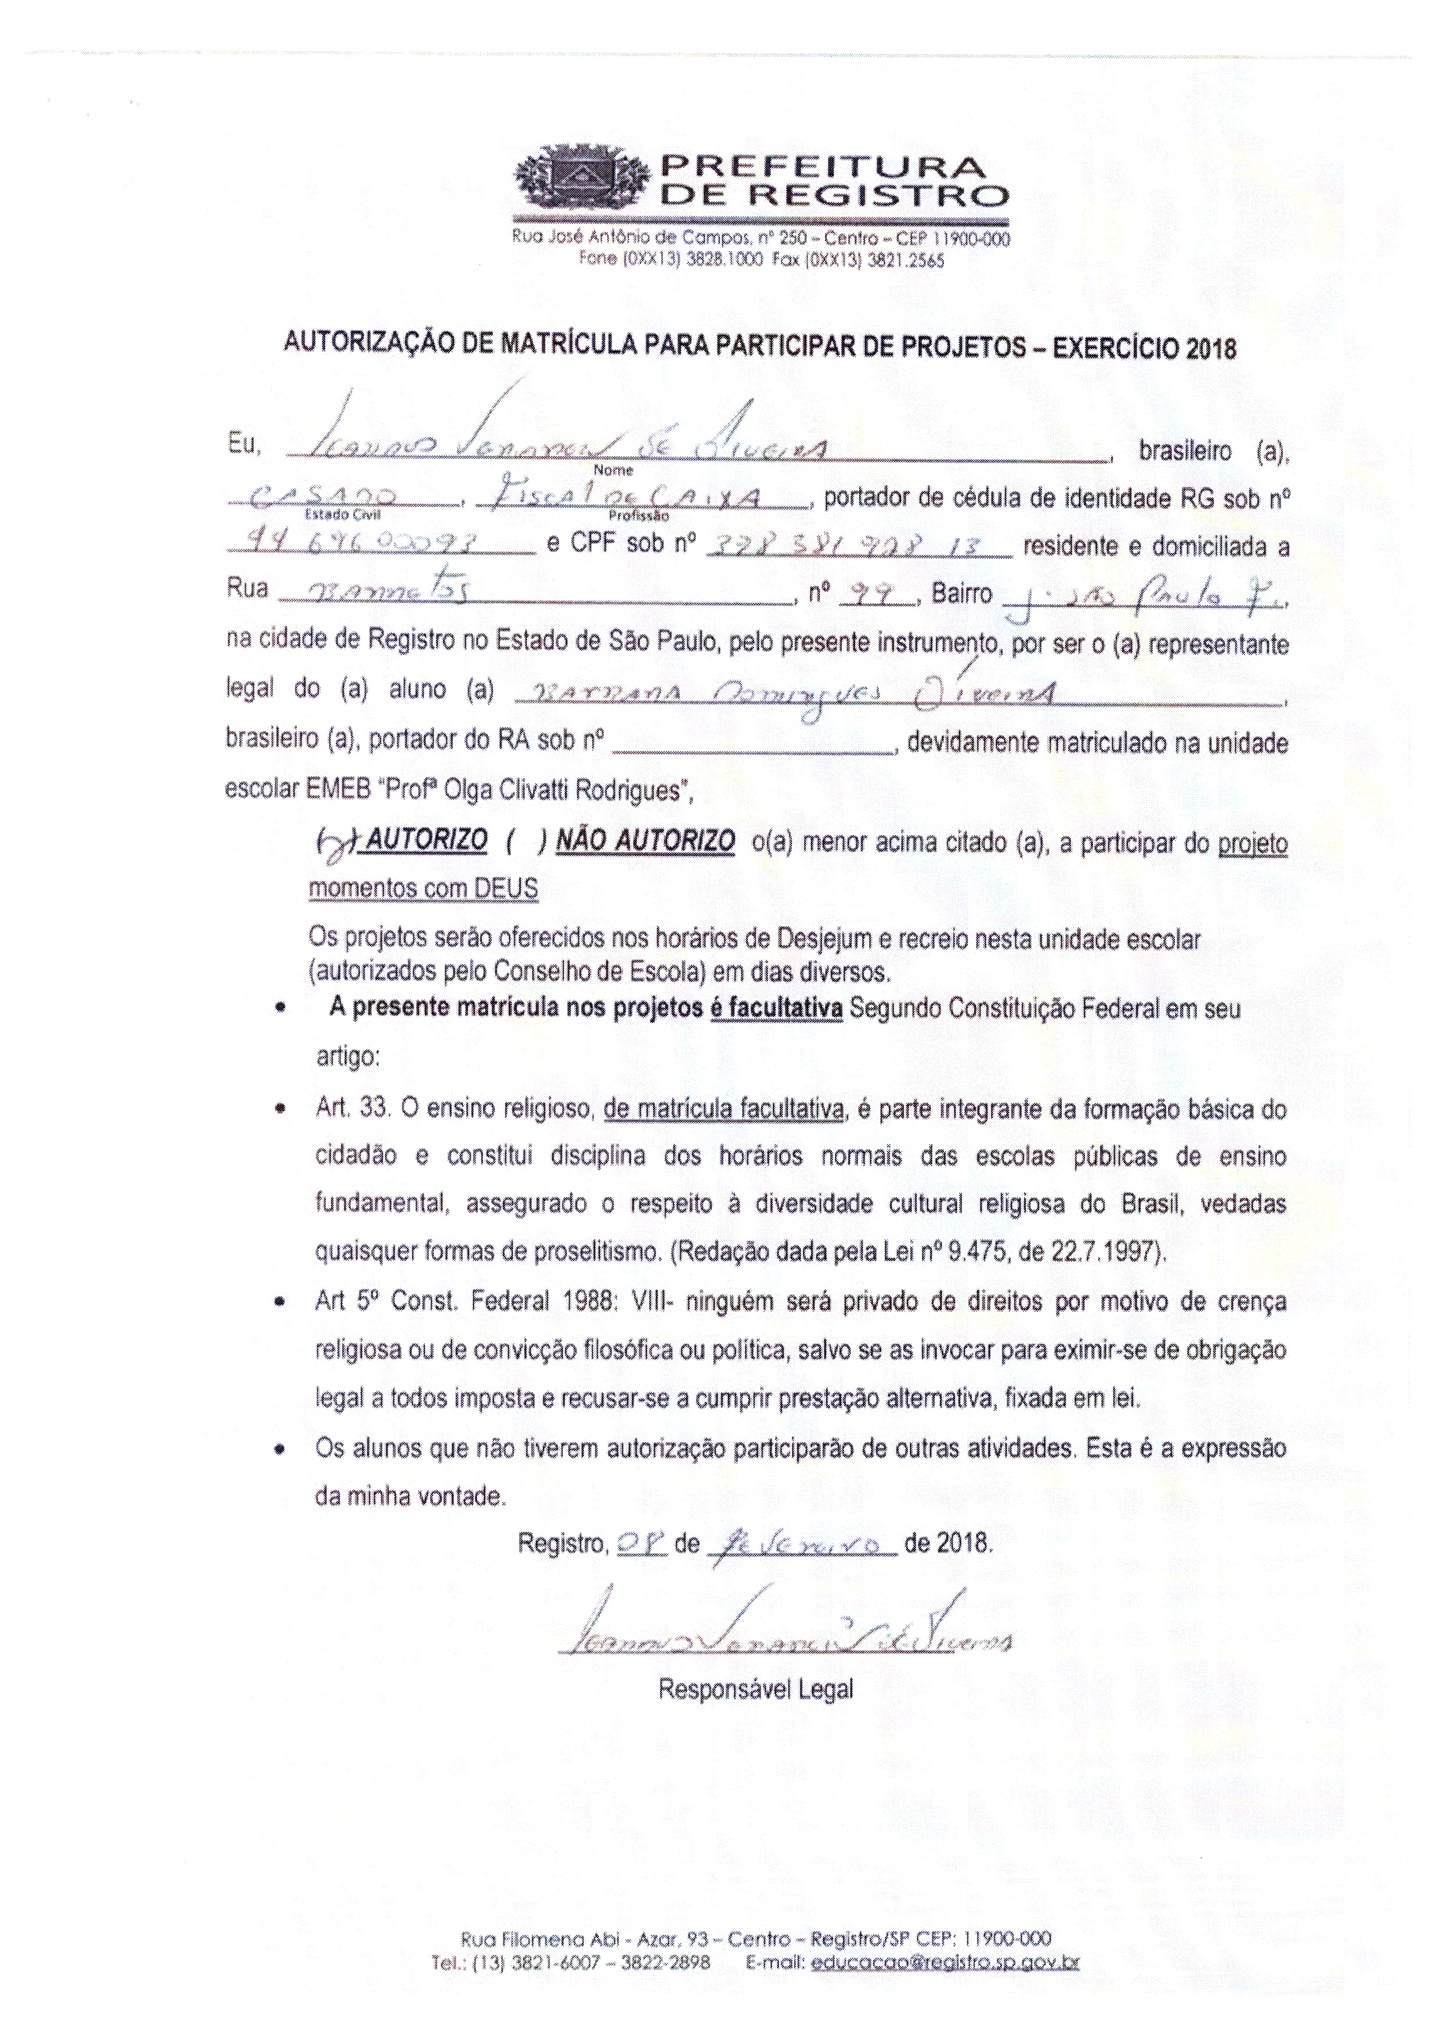 PREFEITURA
DE REGISTRO
Rua José Antônio de Campos, nº 250 – Centro – CEP 11900-000
Fone (0XX13) 3828.1000 Fax (0XX13) 3821.2565
AUTORIZAÇÃO DE MATRÍCULA PARA PARTICIPAR DE PROJETOS – EXERCÍCIO 2018
Eu, DE OLIVEIRA, brasileiro (a),
Nome
CASADO, FISCAL DE CAIXA, portador de cédula de identidade RG sob nº
Estado Civil Profissão
e CPF sob nº residente e domiciliada a
Rua , nº 99, Bairro J. SÃO PAULO,
na cidade de Registro no Estado de São Paulo, pelo presente instrumento, por ser o (a) representante
legal do (a) aluno (a) DOMINGUES OLIVEIRA,
brasileiro (a), portador do RA sob nº , devidamente matriculado na unidade
escolar EMEB “Profª Olga Clivatti Rodrigues”,
(x) AUTORIZO ( ) NÃO AUTORIZO o(a) menor acima citado (a), a participar do projeto
momentos com DEUS
Os projetos serão oferecidos nos horários de Desjejum e recreio nesta unidade escolar
(autorizados pelo Conselho de Escola) em dias diversos.
• A presente matrícula nos projetos é facultativa Segundo Constituição Federal em seu
artigo:
• Art. 33. O ensino religioso, de matrícula facultativa, é parte integrante da formação básica do
cidadão e constitui disciplina dos horários normais das escolas públicas de ensino
fundamental, assegurado o respeito à diversidade cultural religiosa do Brasil, vedadas
quaisquer formas de proselitismo. (Redação dada pela Lei nº 9.475, de 22.7.1997).
• Art 5º Const. Federal 1988: VIII- ninguém será privado de direitos por motivo de crença
religiosa ou de convicção filosófica ou política, salvo se as invocar para eximir-se de obrigação
legal a todos imposta e recusar-se a cumprir prestação alternativa, fixada em lei.
• Os alunos que não tiverem autorização participarão de outras atividades. Esta é a expressão
da minha vontade.
Registro, 08 de fevereiro de 2018.
Responsável Legal
Rua Filomena Abi - Azar, 93 – Centro – Registro/SP CEP: 11900-000
Tel.: (13) 3821-6007 – 3822-2898 E-mail: educacao@registro.sp.gov.br